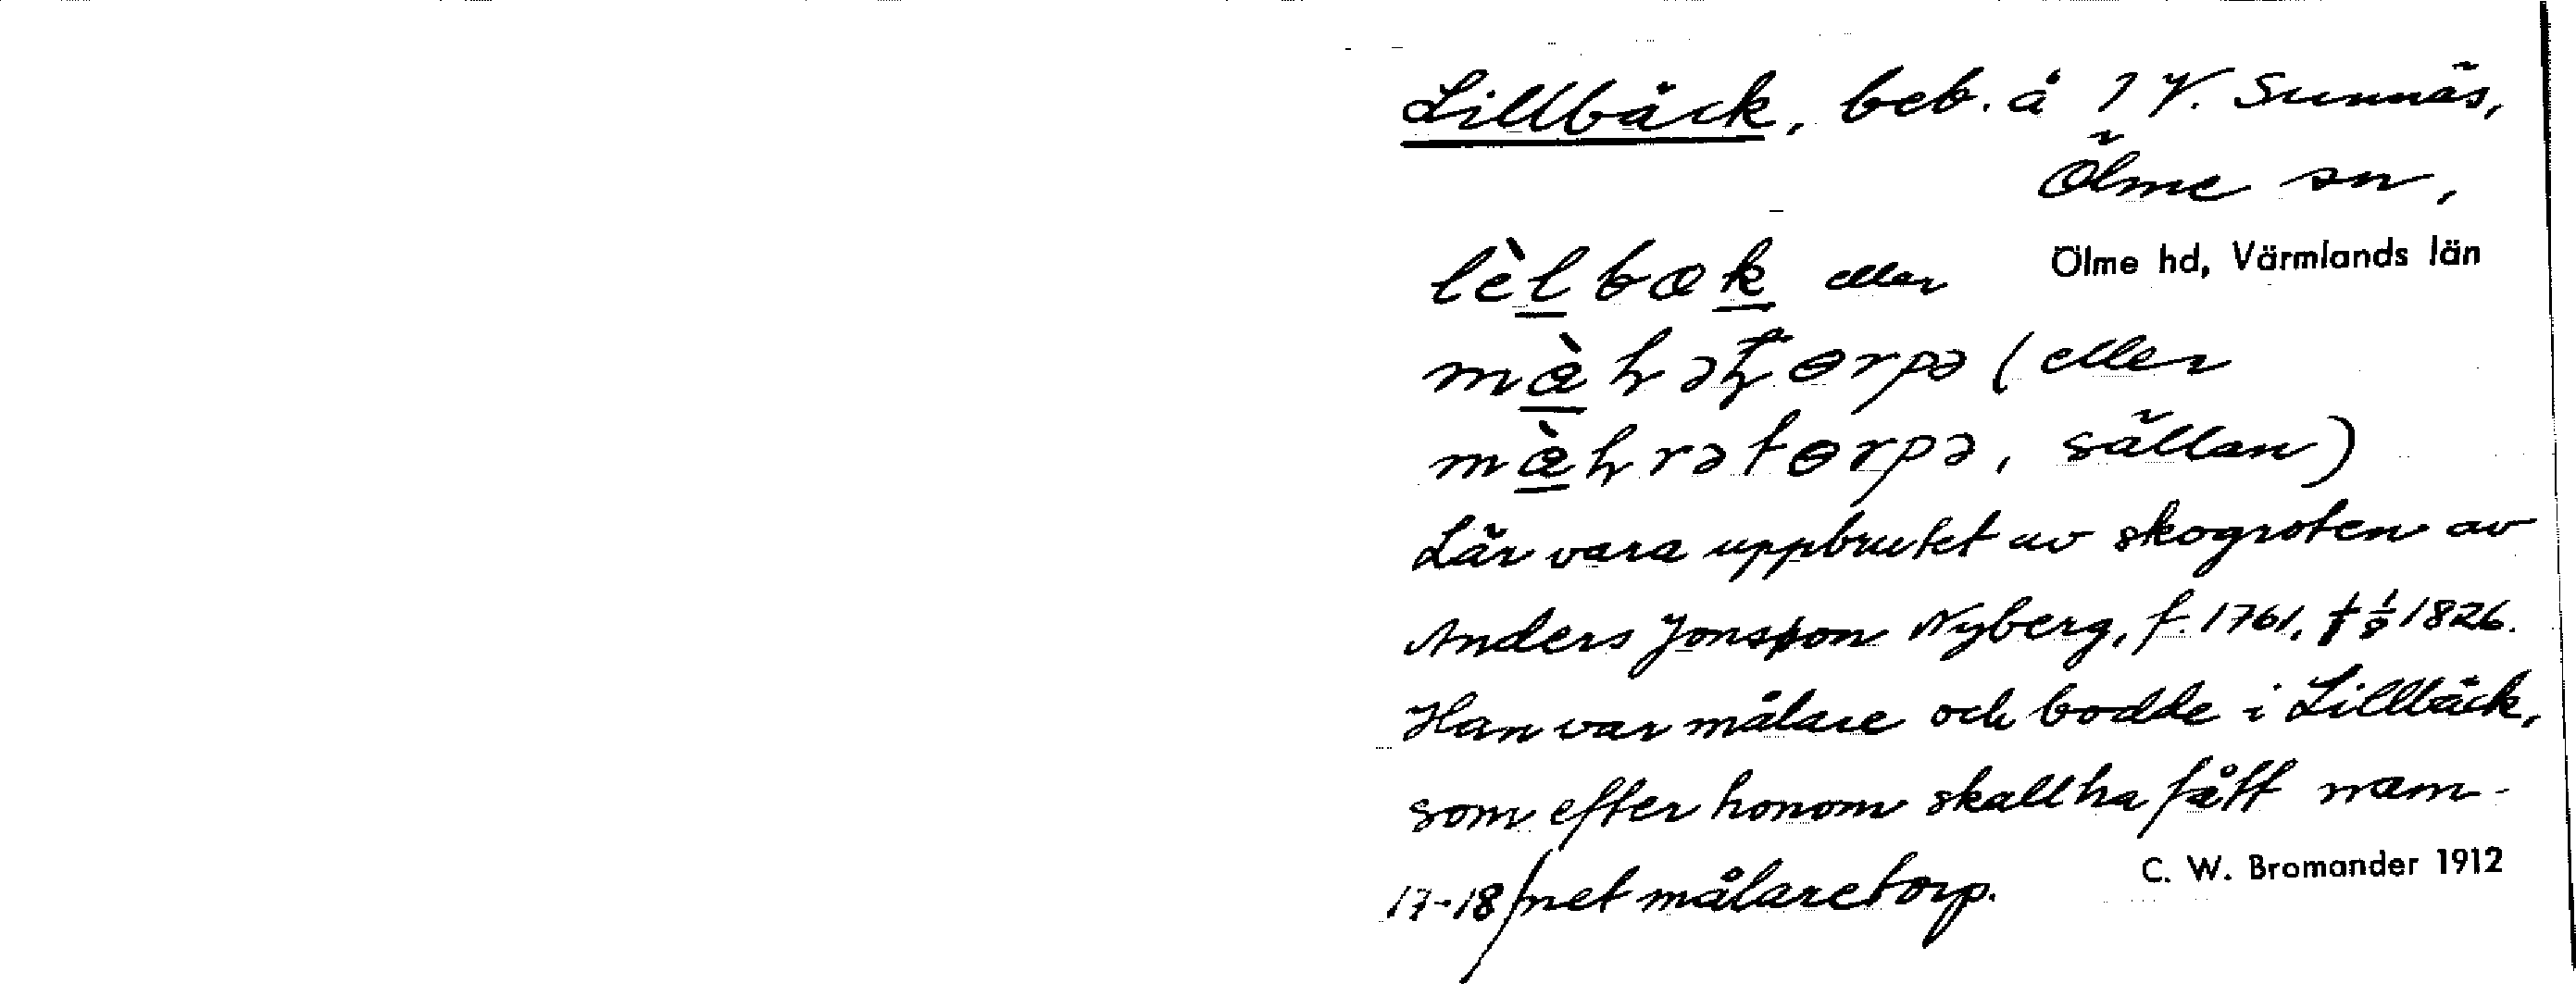 Lillbäck, beb. å 1 V. Sunnäs,
Ölme sn,
Ölme hd, Värmlands län
lèlbæk eller
eller
sällan)
Lär vara uppbrutet av skogroten av
Anders Jonsson Nyberg, f. 1761, † 1/8 1826.
Han var målare och bodde i Lillbäck,
som efter honom skall ha fått nam-
17-18/net målaretorp.
C. W. Bromander 1912